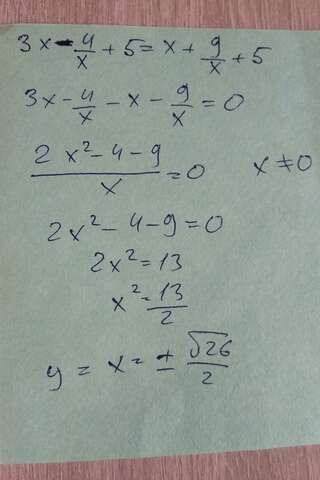 3x - 4/x + 5 = x + 9/x + 5
3x - 4/x - x - 9/x = 0
(2x² - 4 - 9)/x = 0 x ≠ 0
2x² - 4 - 9 = 0
2x² = 13
x² = 13/2
y = x = ± √26/2